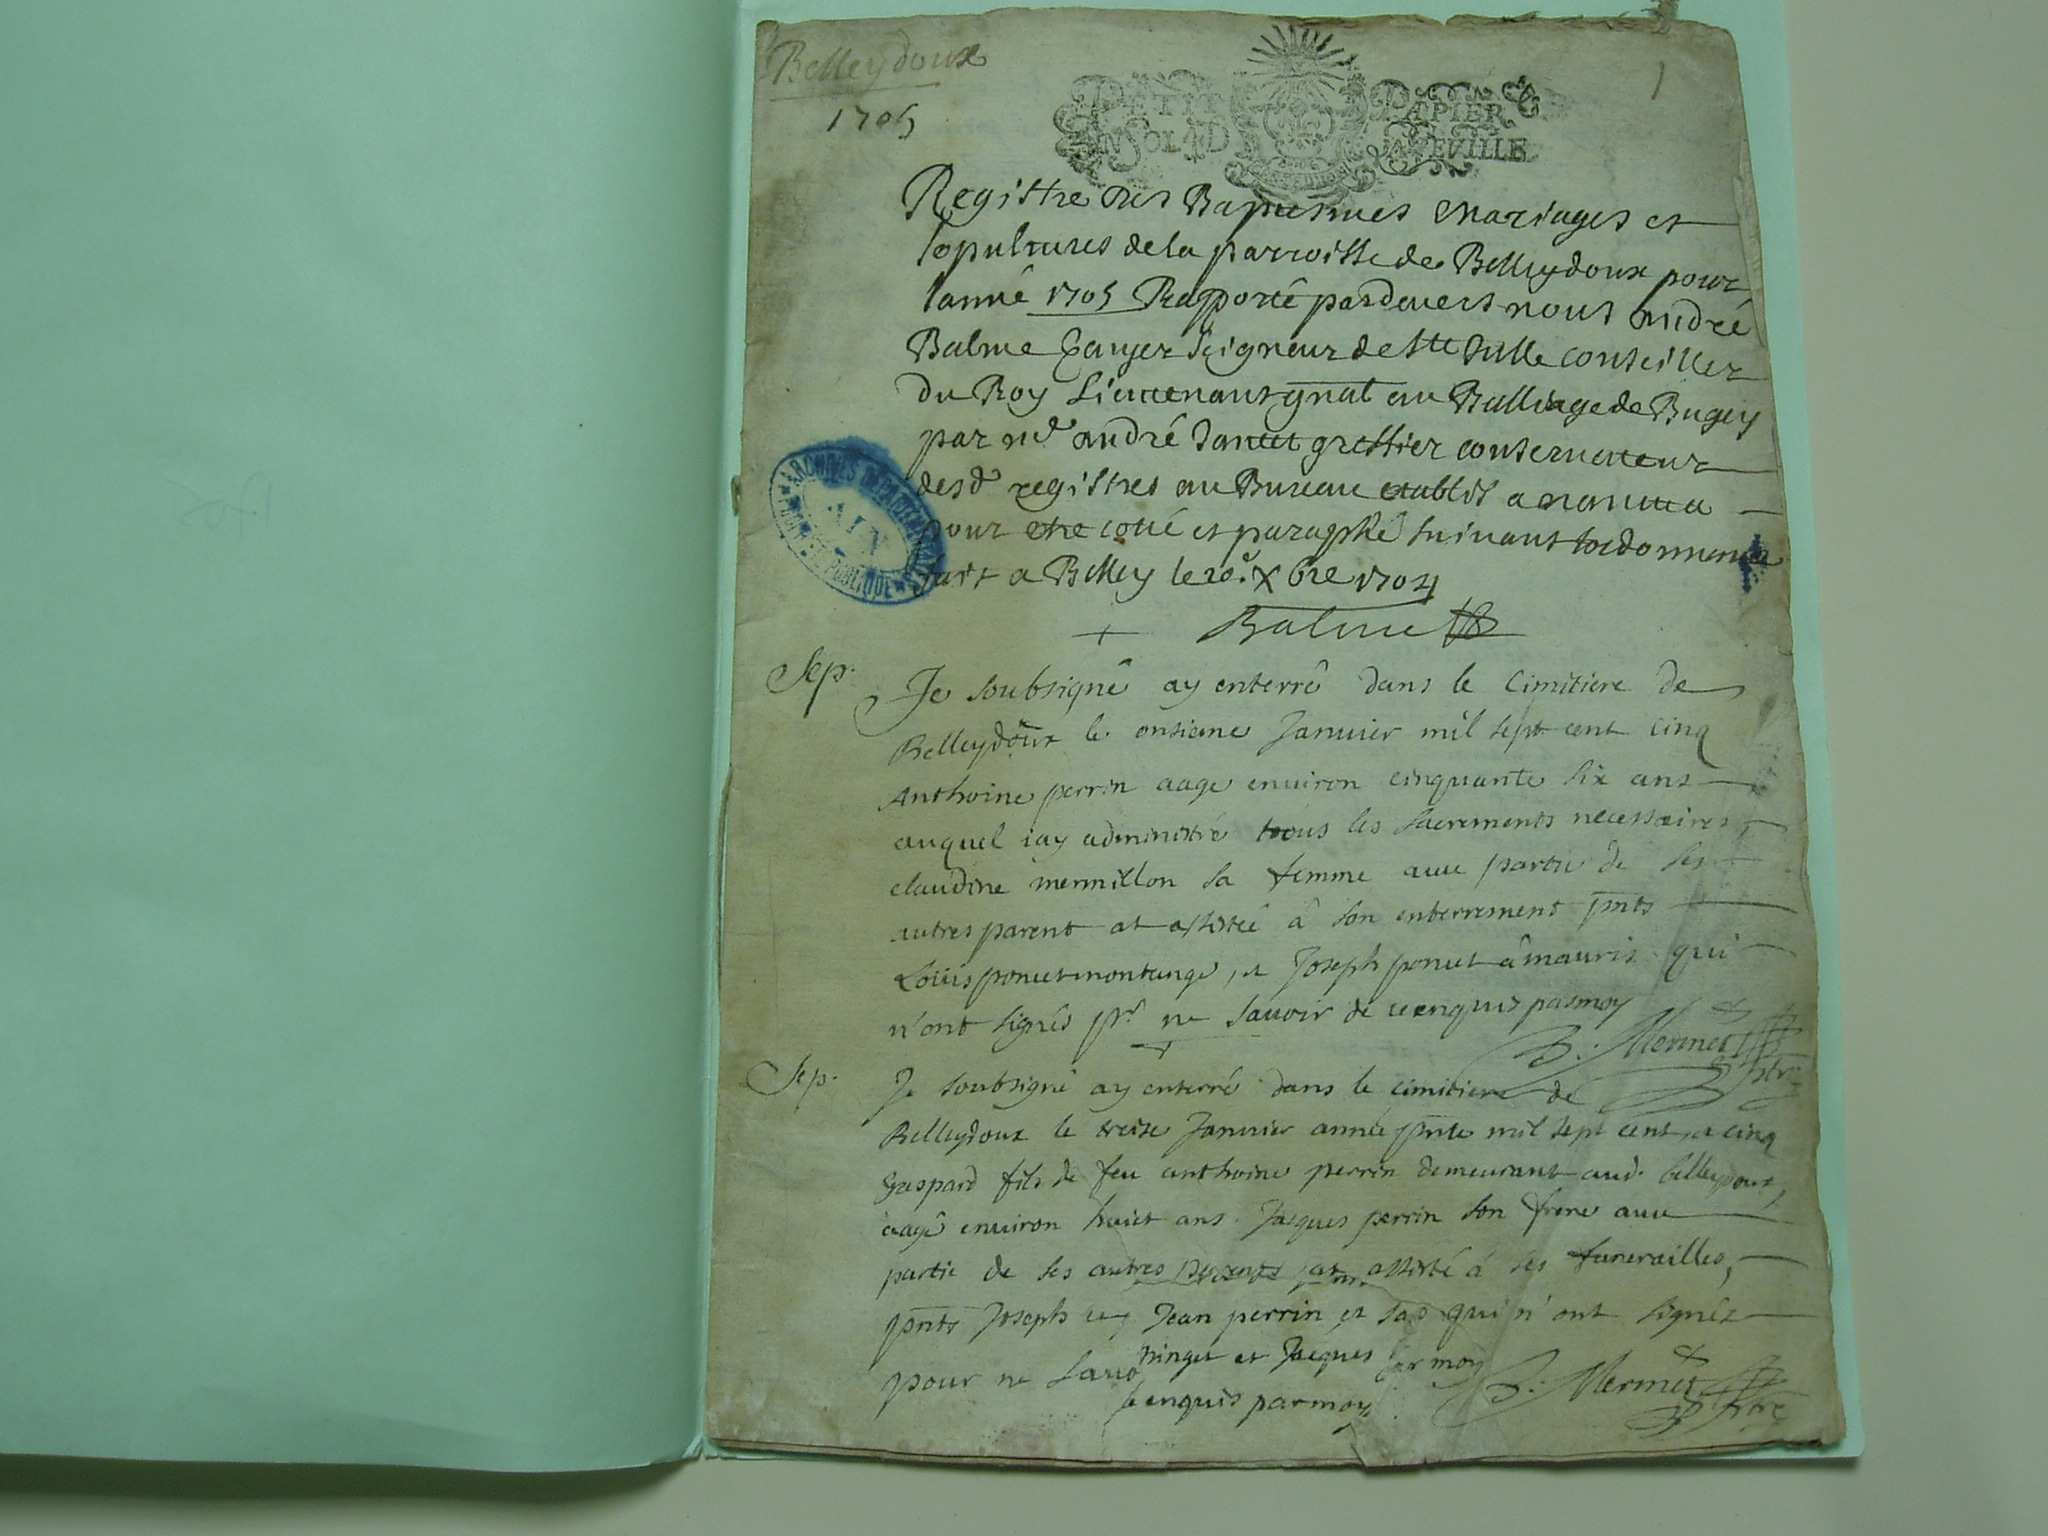 Belleydoux
1705
1
PETIT PAPIER
UN SOL 4 D LA FEVILLE
Registre des Baptesmes mariages et
sepultures de la parroisse de Belleydoux pour
lannée 1705 Rapporté pardevers nous André
Balme Seigneur de Ste Julle conseiller
du Roy Lieutenant gnal au Balliage de Bugey
par me andré greffier conservateur
desd registres au Bureau establit a nantua
pour etre cotté et paraphé suivant lordonnance
fait a Belley le 20e Xbre 1704
Balme
ARCHIVES DEPARTEMENTALES
AIN
PUBLIQUE
Sep.
Je soubsigné ay enterré dans le Cimitiere de
Belleydoux le onsieme Janvier mil sept cent cinq
Anthoine perrin aagé environ cinquante six ans
auquel iay administré tous les sacrements necessaires,
claudine mermillon sa femme avec partie de ses
autres parent at assisté â son enterrement pnts
Louis poncet montange, et Joseph poncet âmauris qui
n'ont signés pr. ne savoir de ce enquis par moy
B. Mermet ptre
Sep.
Je soubsigné ay enterré dans le cimitiere de
Belleydoux le treize Janvier année pnte mil sept cent et cinq
Gaspard fils de feu anthoine perrin demeurant aud. belleydoux,
aagé environ huict ans. Jacques perrin son frere avec
partie de ses autres parents at assisté â ses funerailles,
pnts Joseph Jean perrin et qui n'ont signéz
pour ne savo minget et Jacques par moy
enquis par moy
B. Mermet ptre